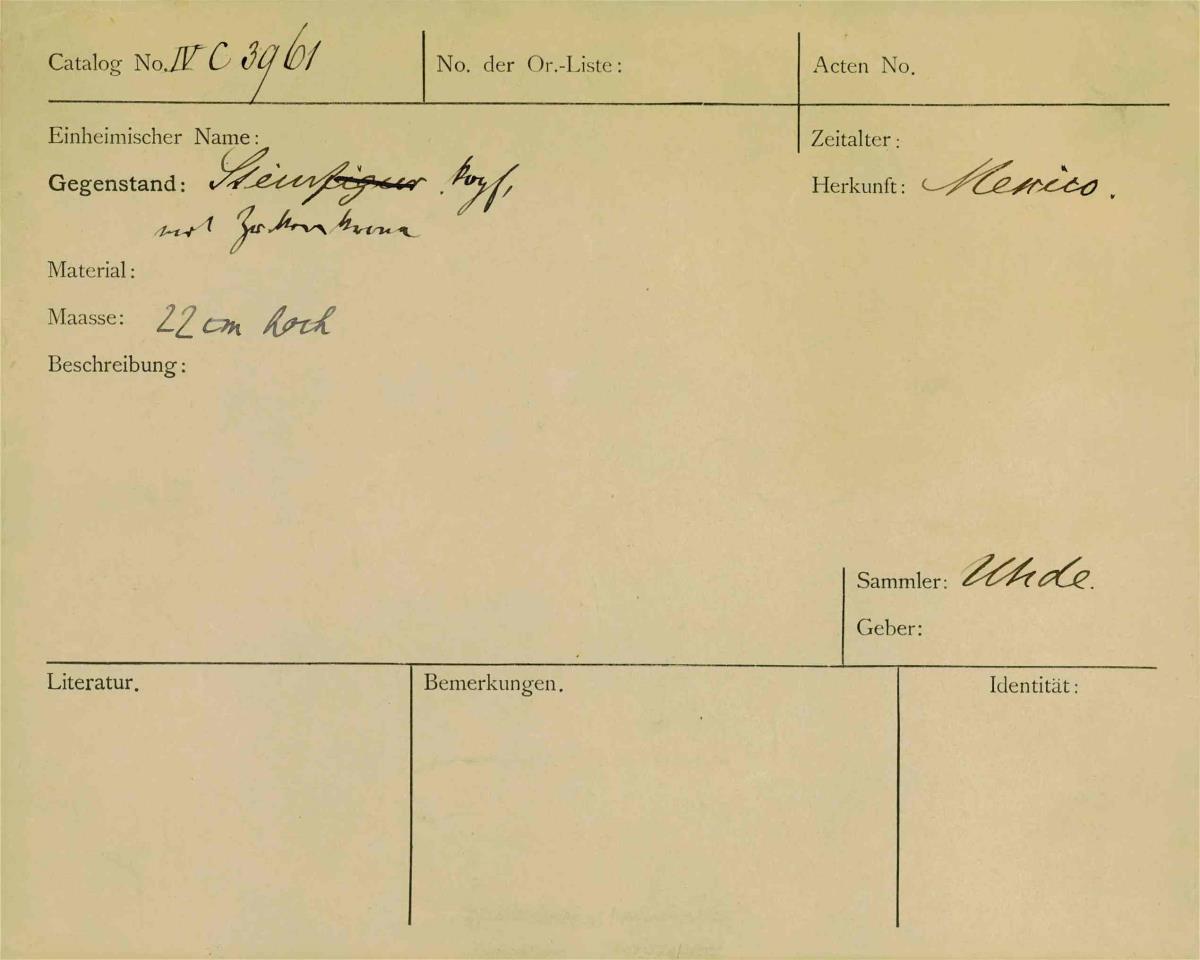 Catalog No. IV C 3961
No. der Or.-Liste:
Acten No.
Einheimischer Name:
Zeitalter:
Gegenstand: Steinfigur kopf,
Herkunft: Mexico.
mit Zackenkrone
Material:
Maasse: 22 cm hoch
Beschreibung:
Sammler: Uhde.
Geber:
Literatur.
Bemerkungen.
Identität: